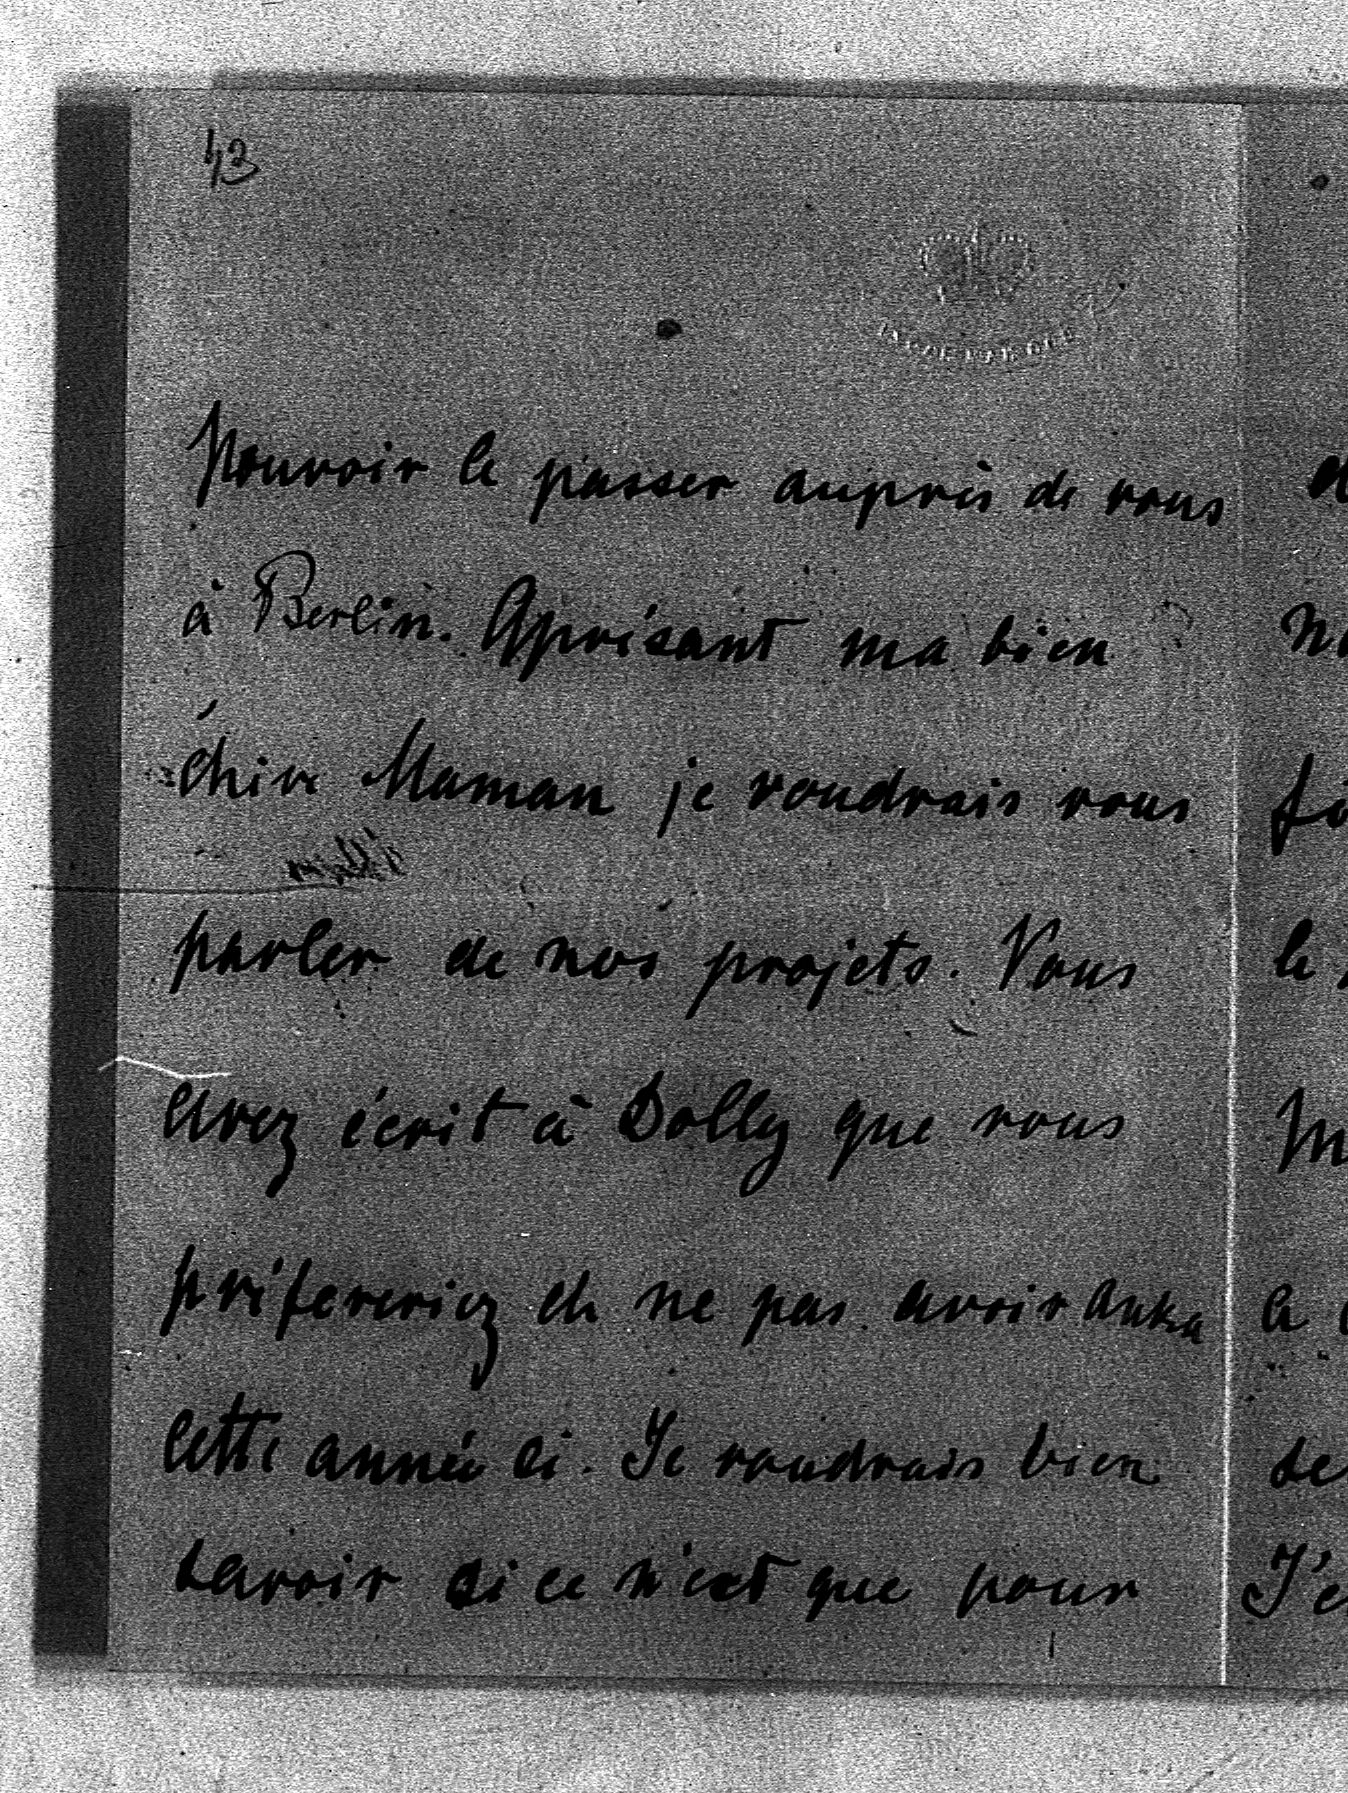 43
pouvoir le passer auprès de vous
à Berlin. Aprésant ma bien
chère Maman je voudrais vous
parler de nos projets. Vous
avez écrit à Dolly que vous
préfereriez de ne pas avoir
cette année ci. Je voudrais bien
savoir si ce n'est que pour